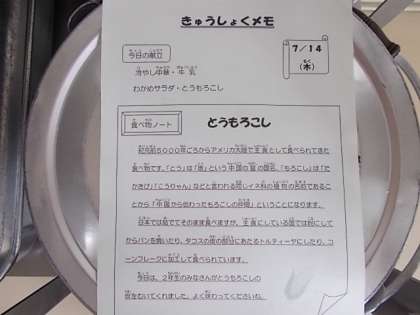 きゅうしょくメモ
7/14
(木)
今日の献立
冷やし中華・牛乳
わかめサラダ・とうもろこし
食べ物ノート
とうもろこし
紀元前5000年ごろからアメリカ大陸で主食として食べられてきた
食べ物です。「とう」は「唐」という中国の昔の国名、「もろこし」は「た
かきび」「こうりゃん」などと言われる同じイネ科の植物の名前であるこ
とから「中国から伝わったもろこしの仲間」ということになります。
日本では茹でてそのまま食べますが、主食にしている国では粉にして
からパンを焼いたり、タコスの皮の部分にあたるトルティーヤにしたり、コ
ーンフレークに加工して食べられています。
今日は、2年生のみなさんがとうもろこしの
皮をむいてくれました。よく味わってくださいね。